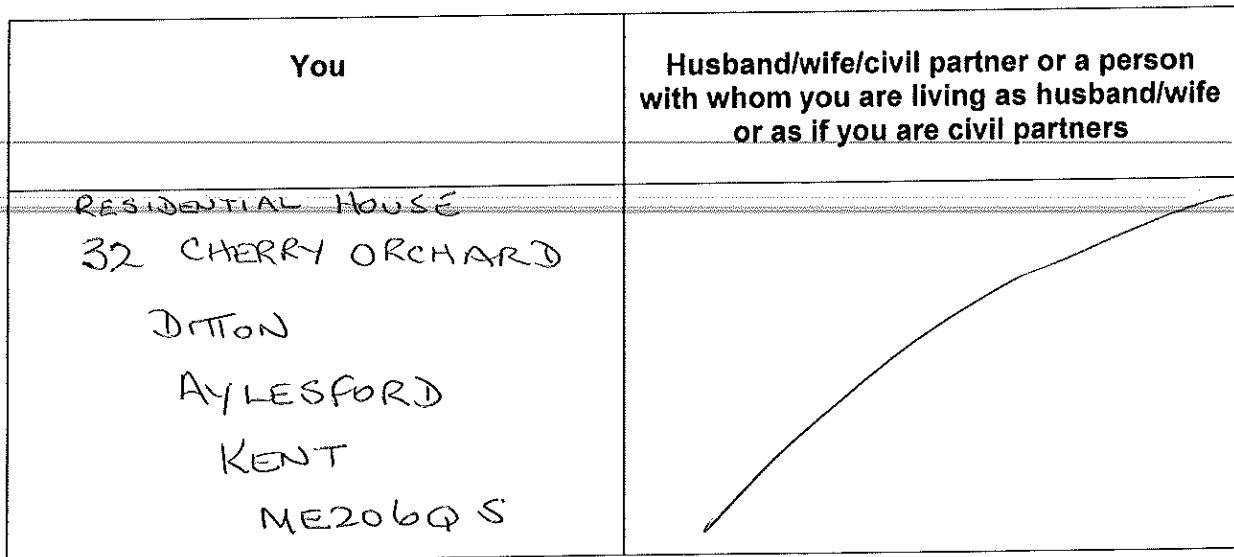 You
Husband/wife/civil partner or a person
with whom you are living as husband/wife
or as if you are civil partners
RESIDENTIAL HOUSE
32 CHERRY ORCHARD
DITTON
AYLESFORD
KENT
ME206QS